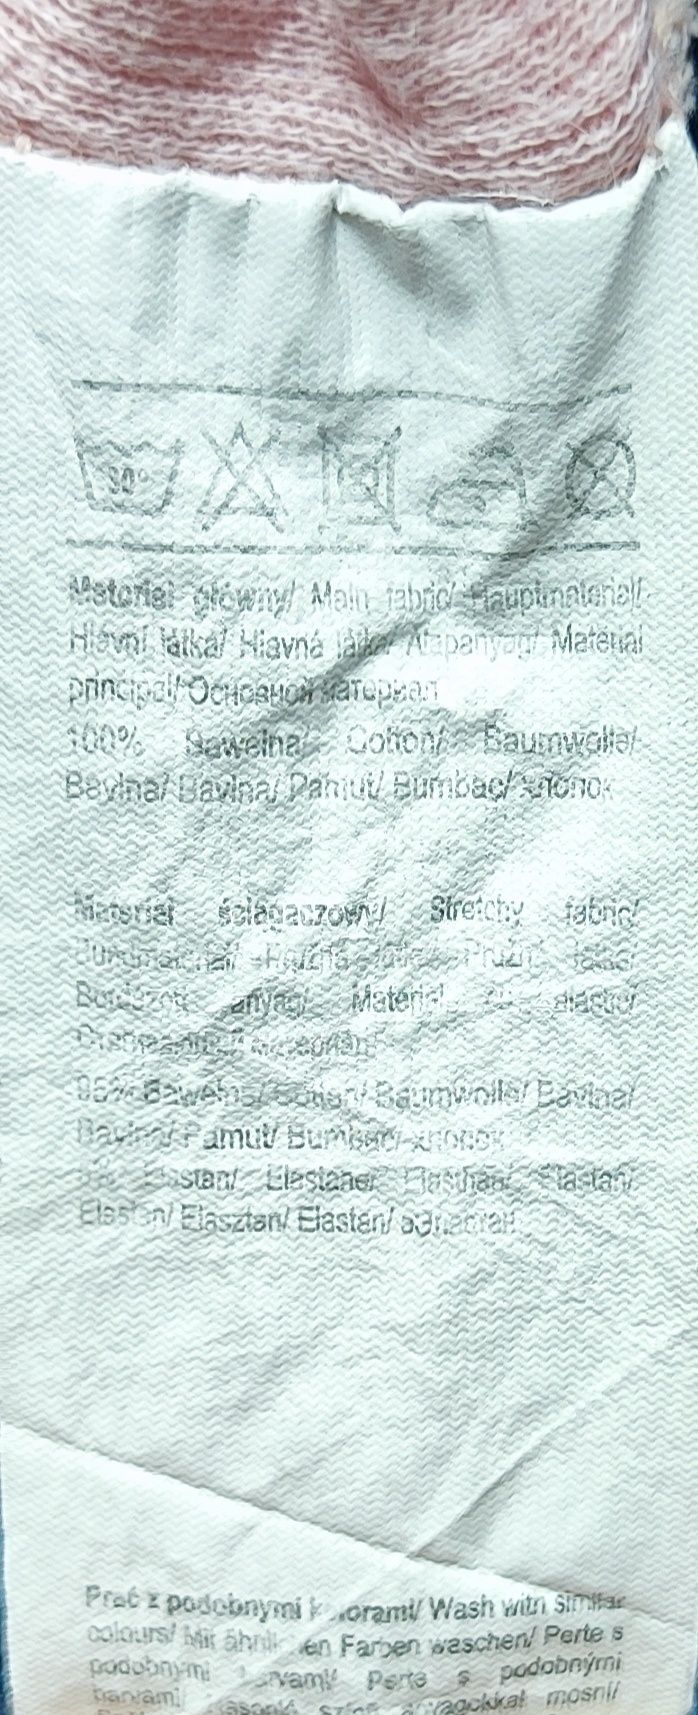 30°
Materiał główny/ Main fabric/ Hauptmaterial/
Hlavní látka/ Hlavná látka/ Alapanyag/ Material
principal/ Основной материал
100% Bawełna/ Cotton/ Baumwolle/
Bavlna/ Bavlna/ Pamut/ Bumbac/ хлопок
Materiał ściągaczowy/ Stretchy fabric/
Bündmaterial/
anyag/ Material cu elastic/
материал
95% Bawełna/ Cotton/ Baumwolle/ Bavlna/
Bavlna/ Pamut/ Bumbac/ хлопок
Elastan/ Elastane/ Elasthan/ Elastan/
Elastan/ Elasztan/ Elastan/ эластан
Prać z podobnymi kolorami/ Wash with similar
colours/ Mit ähnlichen Farben waschen/ Perte s
podobnými barvami/ Perte s podobnými
mosni/